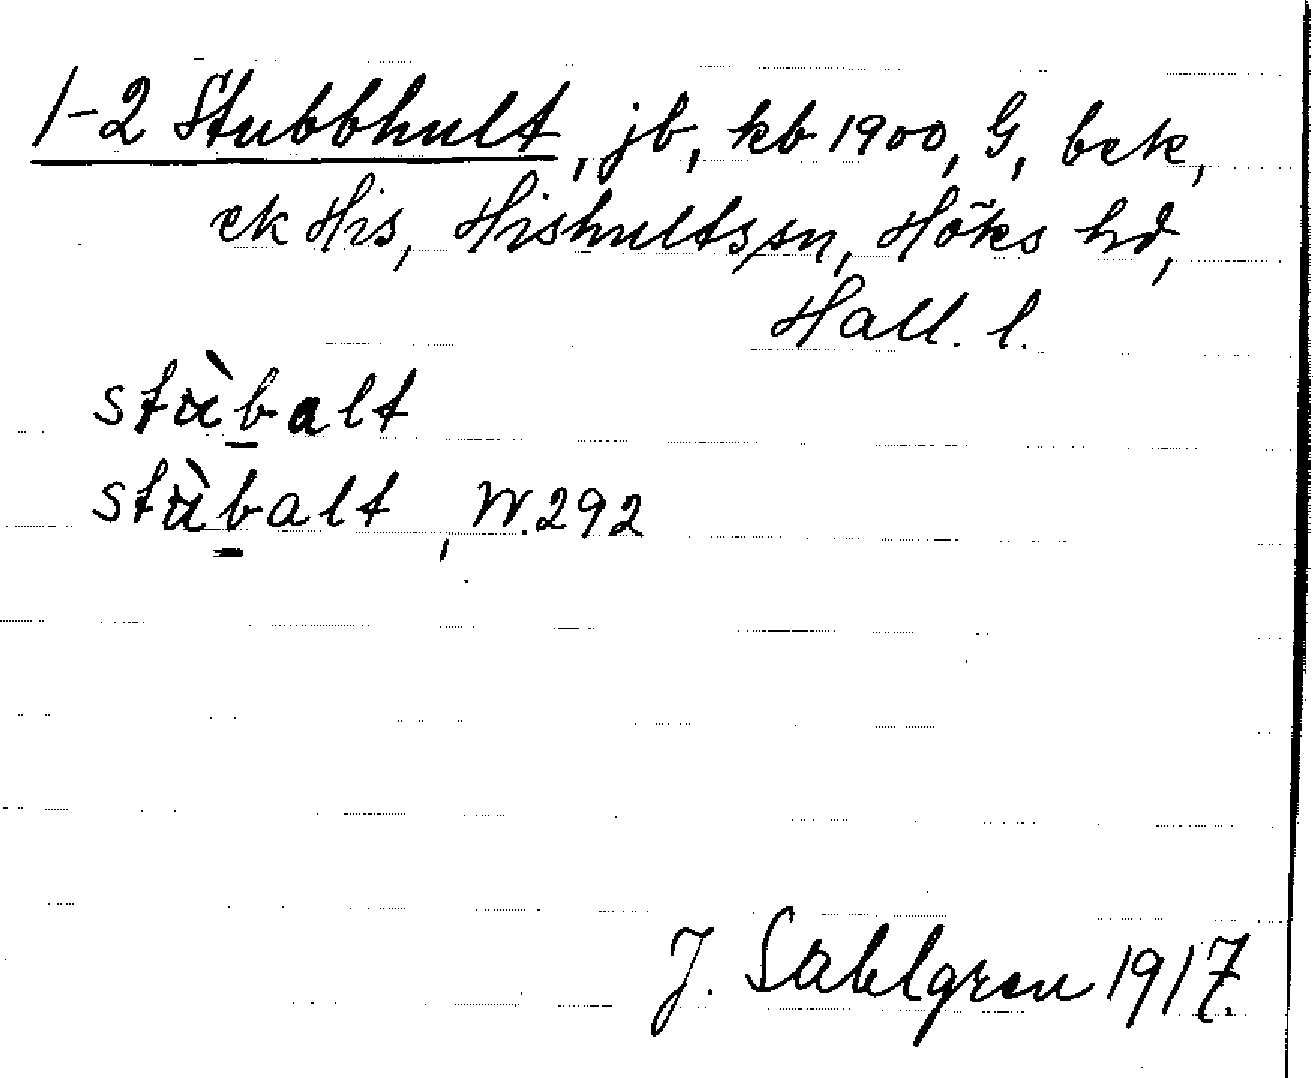 1-2 Stubbhult, jb, kb 1900, G, bek,
ek His, Hishultssn, Höks hd,
Hall. l.
stùbalt
stùbalt, W.292
J. Sahlgren 1917.